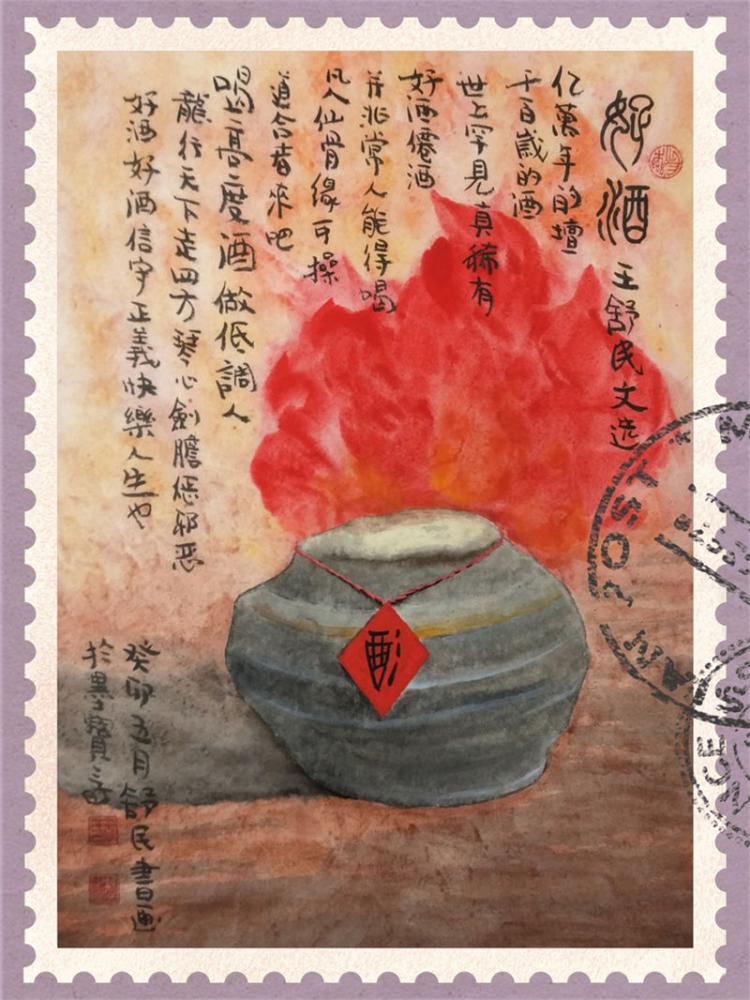 好酒 王舒民文选
亿萬年的壇
千百歲的酒
世上罕見真稀有
好酒僊酒
并非常人能得喝
凡人仙骨緣可操
道合者來吧
喝高度酒做低調人
龍行天下走四方琴心劍膽惩邪恶
好酒好酒信守正義快樂人生也
癸卯五月舒民書画
於墨寶
酒
POST